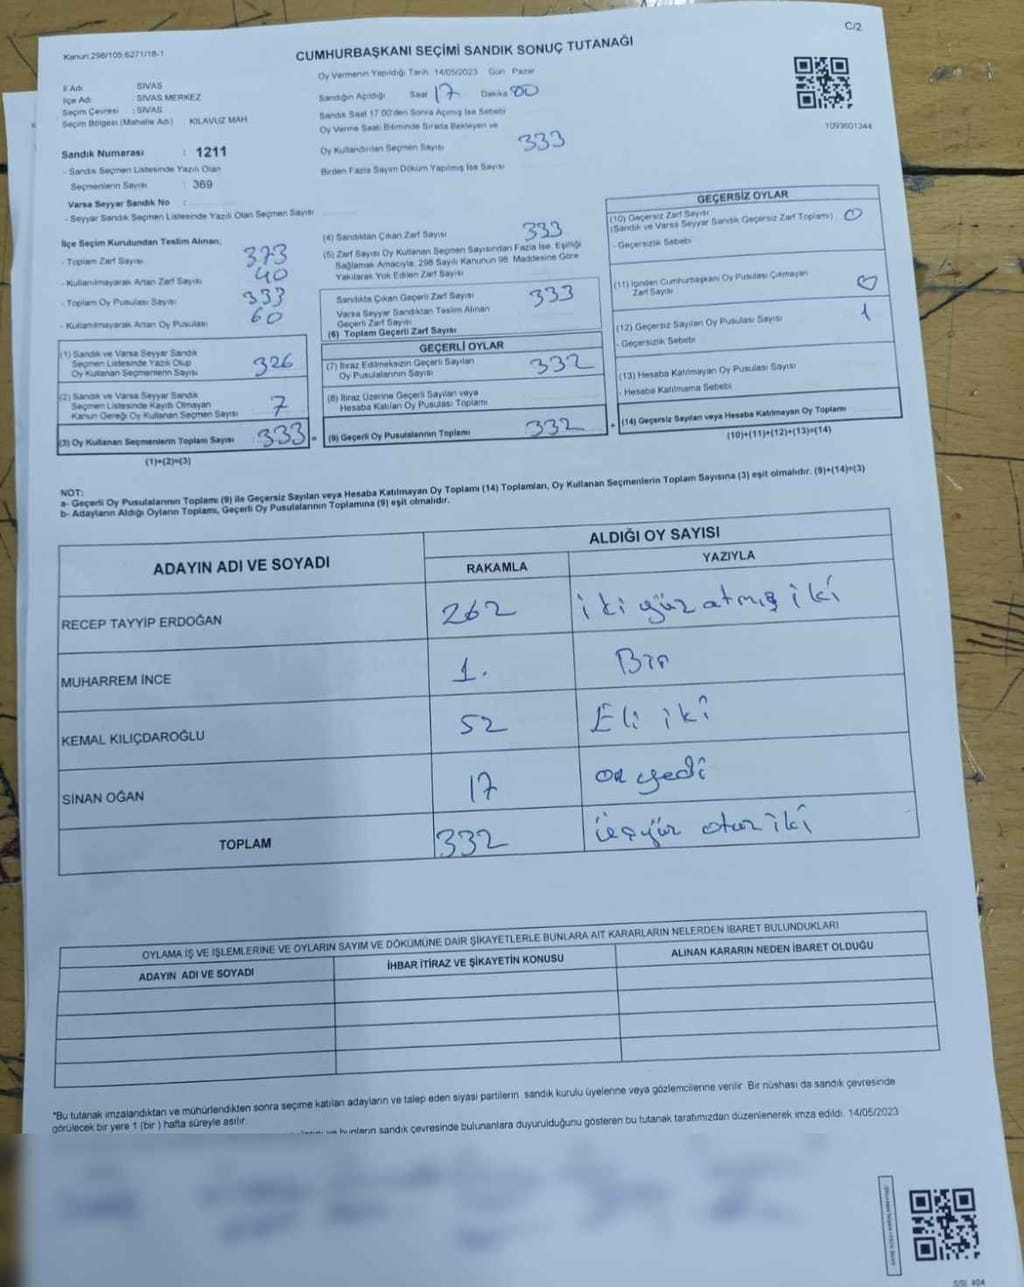 C/2
Kanun:298/105,6271/18-1
CUMHURBAŞKANI SEÇİMİ SANDIK SONUÇ TUTANAĞI
İl Adı : SİVAS
İlçe Adı : SİVAS MERKEZ
Seçim Çevresi : SİVAS
Seçim Bölgesi (Mahalle Adı) : KILAVUZ MAH
Oy Vermenin Yapıldığı Tarih 14/05/2023 Gün Pazar
Sandığın Açıldığı Saat 17 Dakika 00
Sandık Saat 17 00'den Sonra Açılmış İse Sebebi
Oy Verme Saati Bitiminde Sırada Bekleyen ve
Oy Kullandırılan Seçmen Sayısı 333
Birden Fazla Sayım Döküm Yapılmış İse Sayısı
1093601344
Sandık Numarası : 1211
- Sandık Seçmen Listesinde Yazılı Olan
Seçmenlerin Sayısı : 369
Varsa Seyyar Sandık No :
- Seyyar Sandık Seçmen Listesinde Yazılı Olan Seçmen Sayısı
İlçe Seçim Kurulundan Teslim Alınan;
- Toplam Zarf Sayısı 373
- Kullanılmayarak Artan Zarf Sayısı 40
- Toplam Oy Pusulası Sayısı 333
- Kullanılmayarak Artan Oy Pusulası 60
(1) Sandık ve Varsa Seyyar Sandık
Seçmen Listesinde Yazılı Olup
Oy Kullanan Seçmenlerin Sayısı 326
(2) Sandık ve Varsa Seyyar Sandık
Seçmen Listesinde Kayıtlı Olmayan
Kanun Gereği Oy Kullanan Seçmen Sayısı 7
(3) Oy Kullanan Seçmenlerin Toplam Sayısı 333 =
(1)+(2)=(3)
(4) Sandıktan Çıkan Zarf Sayısı 333
(5) Zarf Sayısı Oy Kullanan Seçmen Sayısından Fazla İse, Eşitliği
Sağlamak Amacıyla; 298 Sayılı Kanunun 98. Maddesine Göre
Yakılarak Yok Edilen Zarf Sayısı
Sandıkta Çıkan Geçerli Zarf Sayısı 333
Varsa Seyyar Sandıktan Teslim Alınan
Geçerli Zarf Sayısı
(6) Toplam Geçerli Zarf Sayısı
GEÇERLİ OYLAR
(7) İtiraz Edilmeksizin Geçerli Sayılan
Oy Pusulalarının Sayısı 332
(8) İtiraz Üzerine Geçerli Sayılan veya
Hesaba Katılan Oy Pusulası Toplamı
(9) Geçerli Oy Pusulalarının Toplamı 332 +
GEÇERSİZ OYLAR
(10) Geçersiz Zarf Sayısı 0
(Sandık ve Varsa Seyyar Sandık Geçersiz Zarf Toplamı)
- Geçersizlik Sebebi
(11) İçinden Cumhurbaşkanı Oy Pusulası Çıkmayan
Zarf Sayısı 0
(12) Geçersiz Sayılan Oy Pusulası Sayısı 1
- Geçersizlik Sebebi
(13) Hesaba Katılmayan Oy Pusulası Sayısı
- Hesaba Katılmama Sebebi
(14) Geçersiz Sayılan veya Hesaba Katılmayan Oy Toplamı
(10)+(11)+(12)+(13)=(14)
NOT:
a- Geçerli Oy Pusulalarının Toplamı (9) ile Geçersiz Sayılan veya Hesaba Katılmayan Oy Toplamı (14) Toplamları, Oy Kullanan Seçmenlerin Toplam Sayısına (3) eşit olmalıdır. (9)+(14)=(3)
b- Adayların Aldığı Oyların Toplamı, Geçerli Oy Pusulalarının Toplamına (9) eşit olmalıdır.
ADAYIN ADI VE SOYADI
ALDIĞI OY SAYISI
RAKAMLA YAZIYLA
RECEP TAYYİP ERDOĞAN 262 iki yüz atmış iki
MUHARREM İNCE 1. Bir
KEMAL KILIÇDAROĞLU 52 Eli iki
SİNAN OĞAN 17 on yedi
TOPLAM 332 üçyüz otuz iki
OYLAMA İŞ VE İŞLEMLERİNE VE OYLARIN SAYIM VE DÖKÜMÜNE DAİR ŞİKAYETLERLE BUNLARA AİT KARARLARIN NELERDEN İBARET BULUNDUKLARI
ADAYIN ADI VE SOYADI İHBAR İTİRAZ VE ŞİKAYETİN KONUSU ALINAN KARARIN NEDEN İBARET OLDUĞU
*Bu tutanak imzalandıktan ve mühürlendikten sonra seçime katılan adayların ve talep eden siyasi partilerin sandık kurulu üyelerine veya gözlemcilerine verilir. Bir nüshası da sandık çevresinde
görülecek bir yere 1 (bir) hafta süreyle asılır.
ve bunların sandık çevresinde bulunanlara duyurulduğunu gösteren bu tutanak tarafımızdan düzenlenerek imza edildi. 14/05/2023